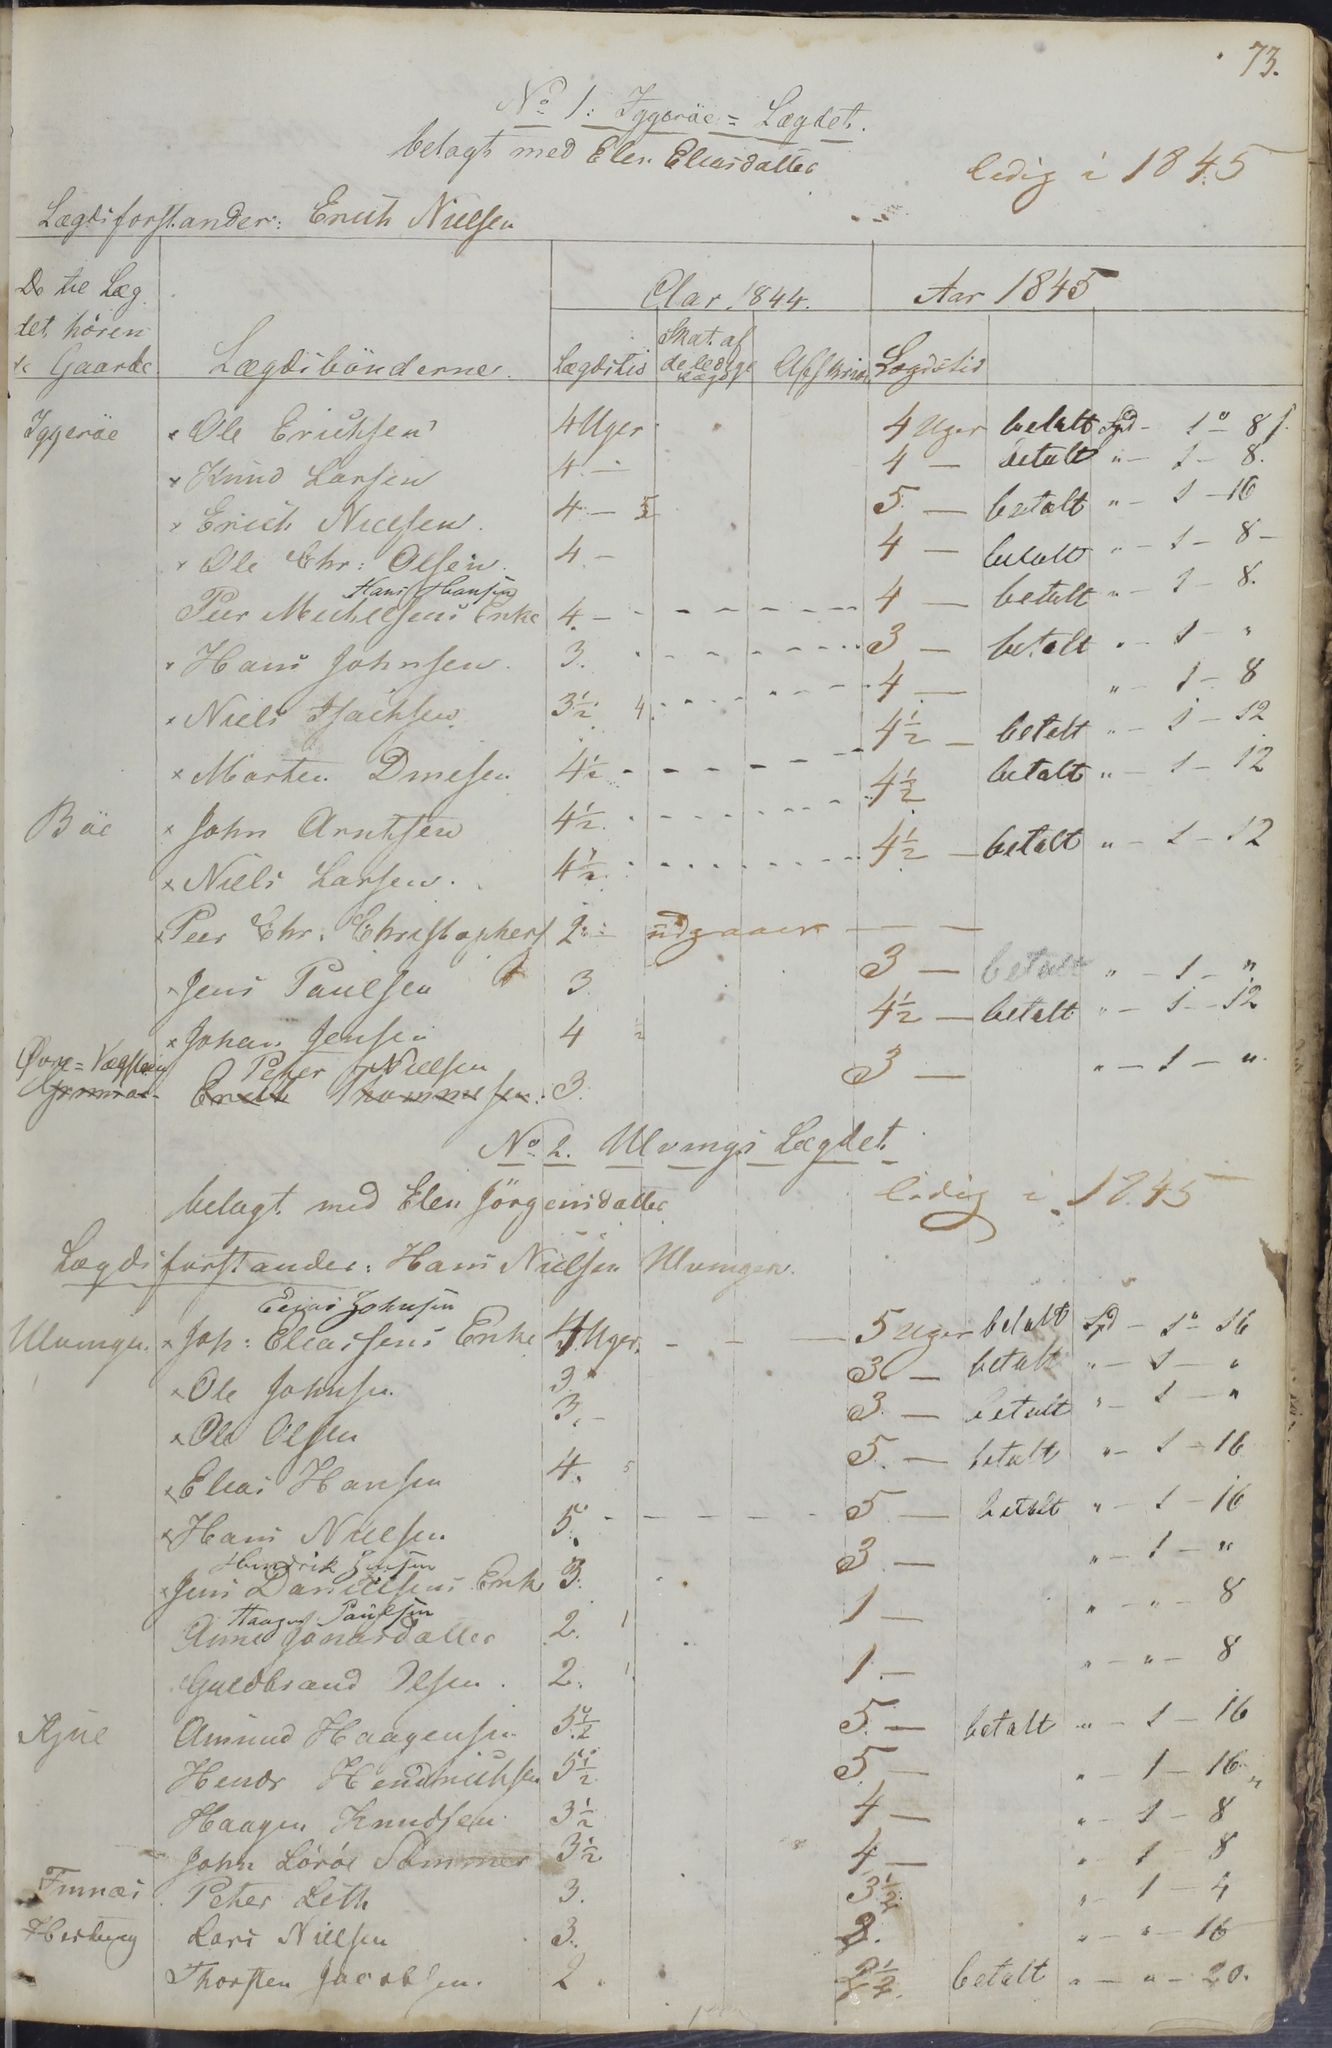 73.
No 1: Iggeröe = Lægdet.
belagt med Elen Eliasdatter
ledig i 1845
Lægdsforstander: Erich Nielsen
De til Læg
det hören
de Gaarde
Lægdsbönderne.
Aar 1844.
Aar 1845
Lægdstid
Skat af
de ledige
Lægd
Afskriv.
Lægdstid
Iggeröe × Ole Erichsen 4 Uger 4 Uger betalt Spd - 1 " 8 s
× Knud Larsen 4 - 4 - betalt " - 1 - 8.
× Erich Nielsen. 4 - 5 5 - betalt " - 1 - 16
× Ole Chr: Olsen. 4 - 4 - betalt " - 1 - 8 -
Hans Hansen
Peer Michelsens Enke 4 - 4 - betalt " - 1 - 8.
× Hans Johnsen. 3. 3 - betalt " - 1 - "
× Niels Isachsen 3½ 4. 4 - " - 1 - 8
× Morten Dinesen 4½ 4½ - betalt " - 1 - 12
Böe × John Arntsen 4½ 4½ betalt " - 1 - 12
× Niels Larsen. 4½ 4½ - betalt " - 1 - 12
× Peer Chr: Christophers 2 - udgaaer - -
× Jens Paulsen 3 3 - betalt " - 1 - "
× Johan Jensen 4 ½ 4½ - betalt " - 1 - 12
Peter Nielsen
Erich Thommesen. 3. 3 - " - 1 - "
No 2. Ulvings Lægdet.
belagt med Elen Jörgensdatter
ledig i 1845
Lægdsforstander: Hans Nielsen Ulvingen.
Elias Johnsen
Ulvingen. × Joh: Eliassens Enke 4 Uger. 5 Uger betalt Spd - 1 " 16
× Ole Johnsen 3 " 3 - betalt " - 1 - "
× Ole Olsen 3. - 3 - betalt " - 1 - "
× Elias Hansen 4. 5 5. - betalt " - 1 - 16
× Hans Nielsen 5. 5 - betalt " - 1 - 16
Hendrik Jensen
× Jens Danielsens Enke 3. 3 - " - 1 - "
Haagen Paulsen
Anne Jonasdatter 2. 1 1 - " - " - 8
Guldbrand Olsen. 2. 1. 1. - " - " - 8
Amund Haagensen 5½ 5. - betalt " - 1 - 16
Hendr Hendrichsen 5½ 5 - " - 1 - 16
Haagen Knudsen 3½ 4 - " - 1 - 8
John Löröe Sommer 3½ 4 - " - 1 - 8
Finnæs Peter Leth 3. 3½ " - 1 - 4
Lars Nielsen 3. 2. " - " - 16
Thorsten Jacobsen. 2 2½ betalt " - " - 20.